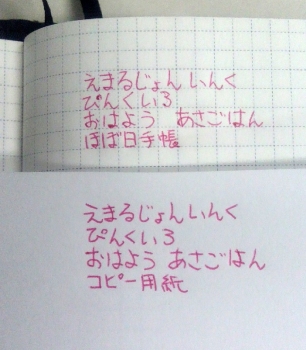 えまるじょん いんく
ぴんくいろ
おはよう あさごはん
ほぼ日手帳
えまるじょん いんく
ぴんくいろ
おはよう あさごはん
コピー用紙